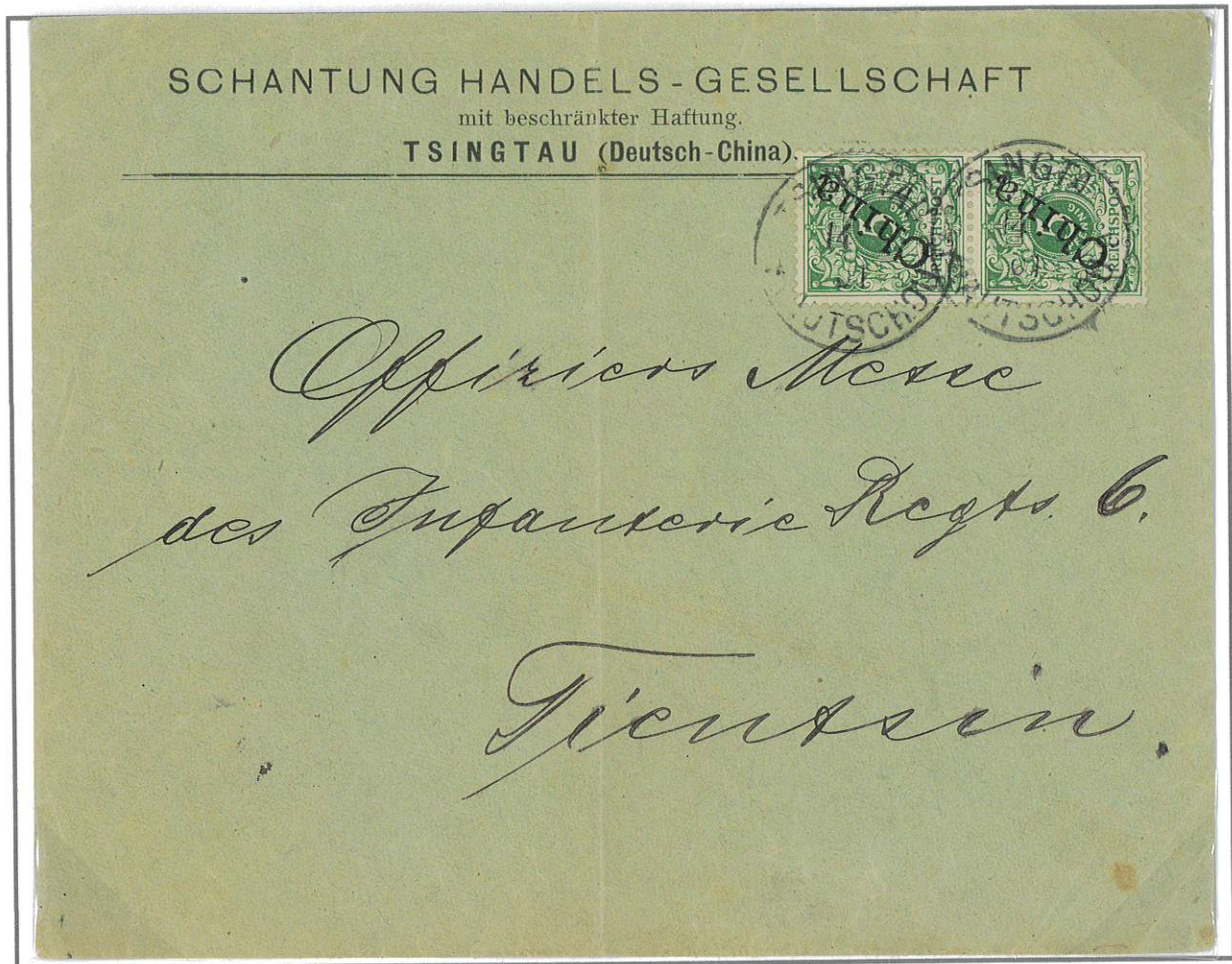 SCHANTUNG HANDELS-GESELLSCHAFT
mit beschränkter Haftung.
TSINGTAU (Deutsch-China).
China
REICHSPOST
China
REICHSPOST
Offiziers Messe
des Infanterie Regts. 6.
Tientsin.